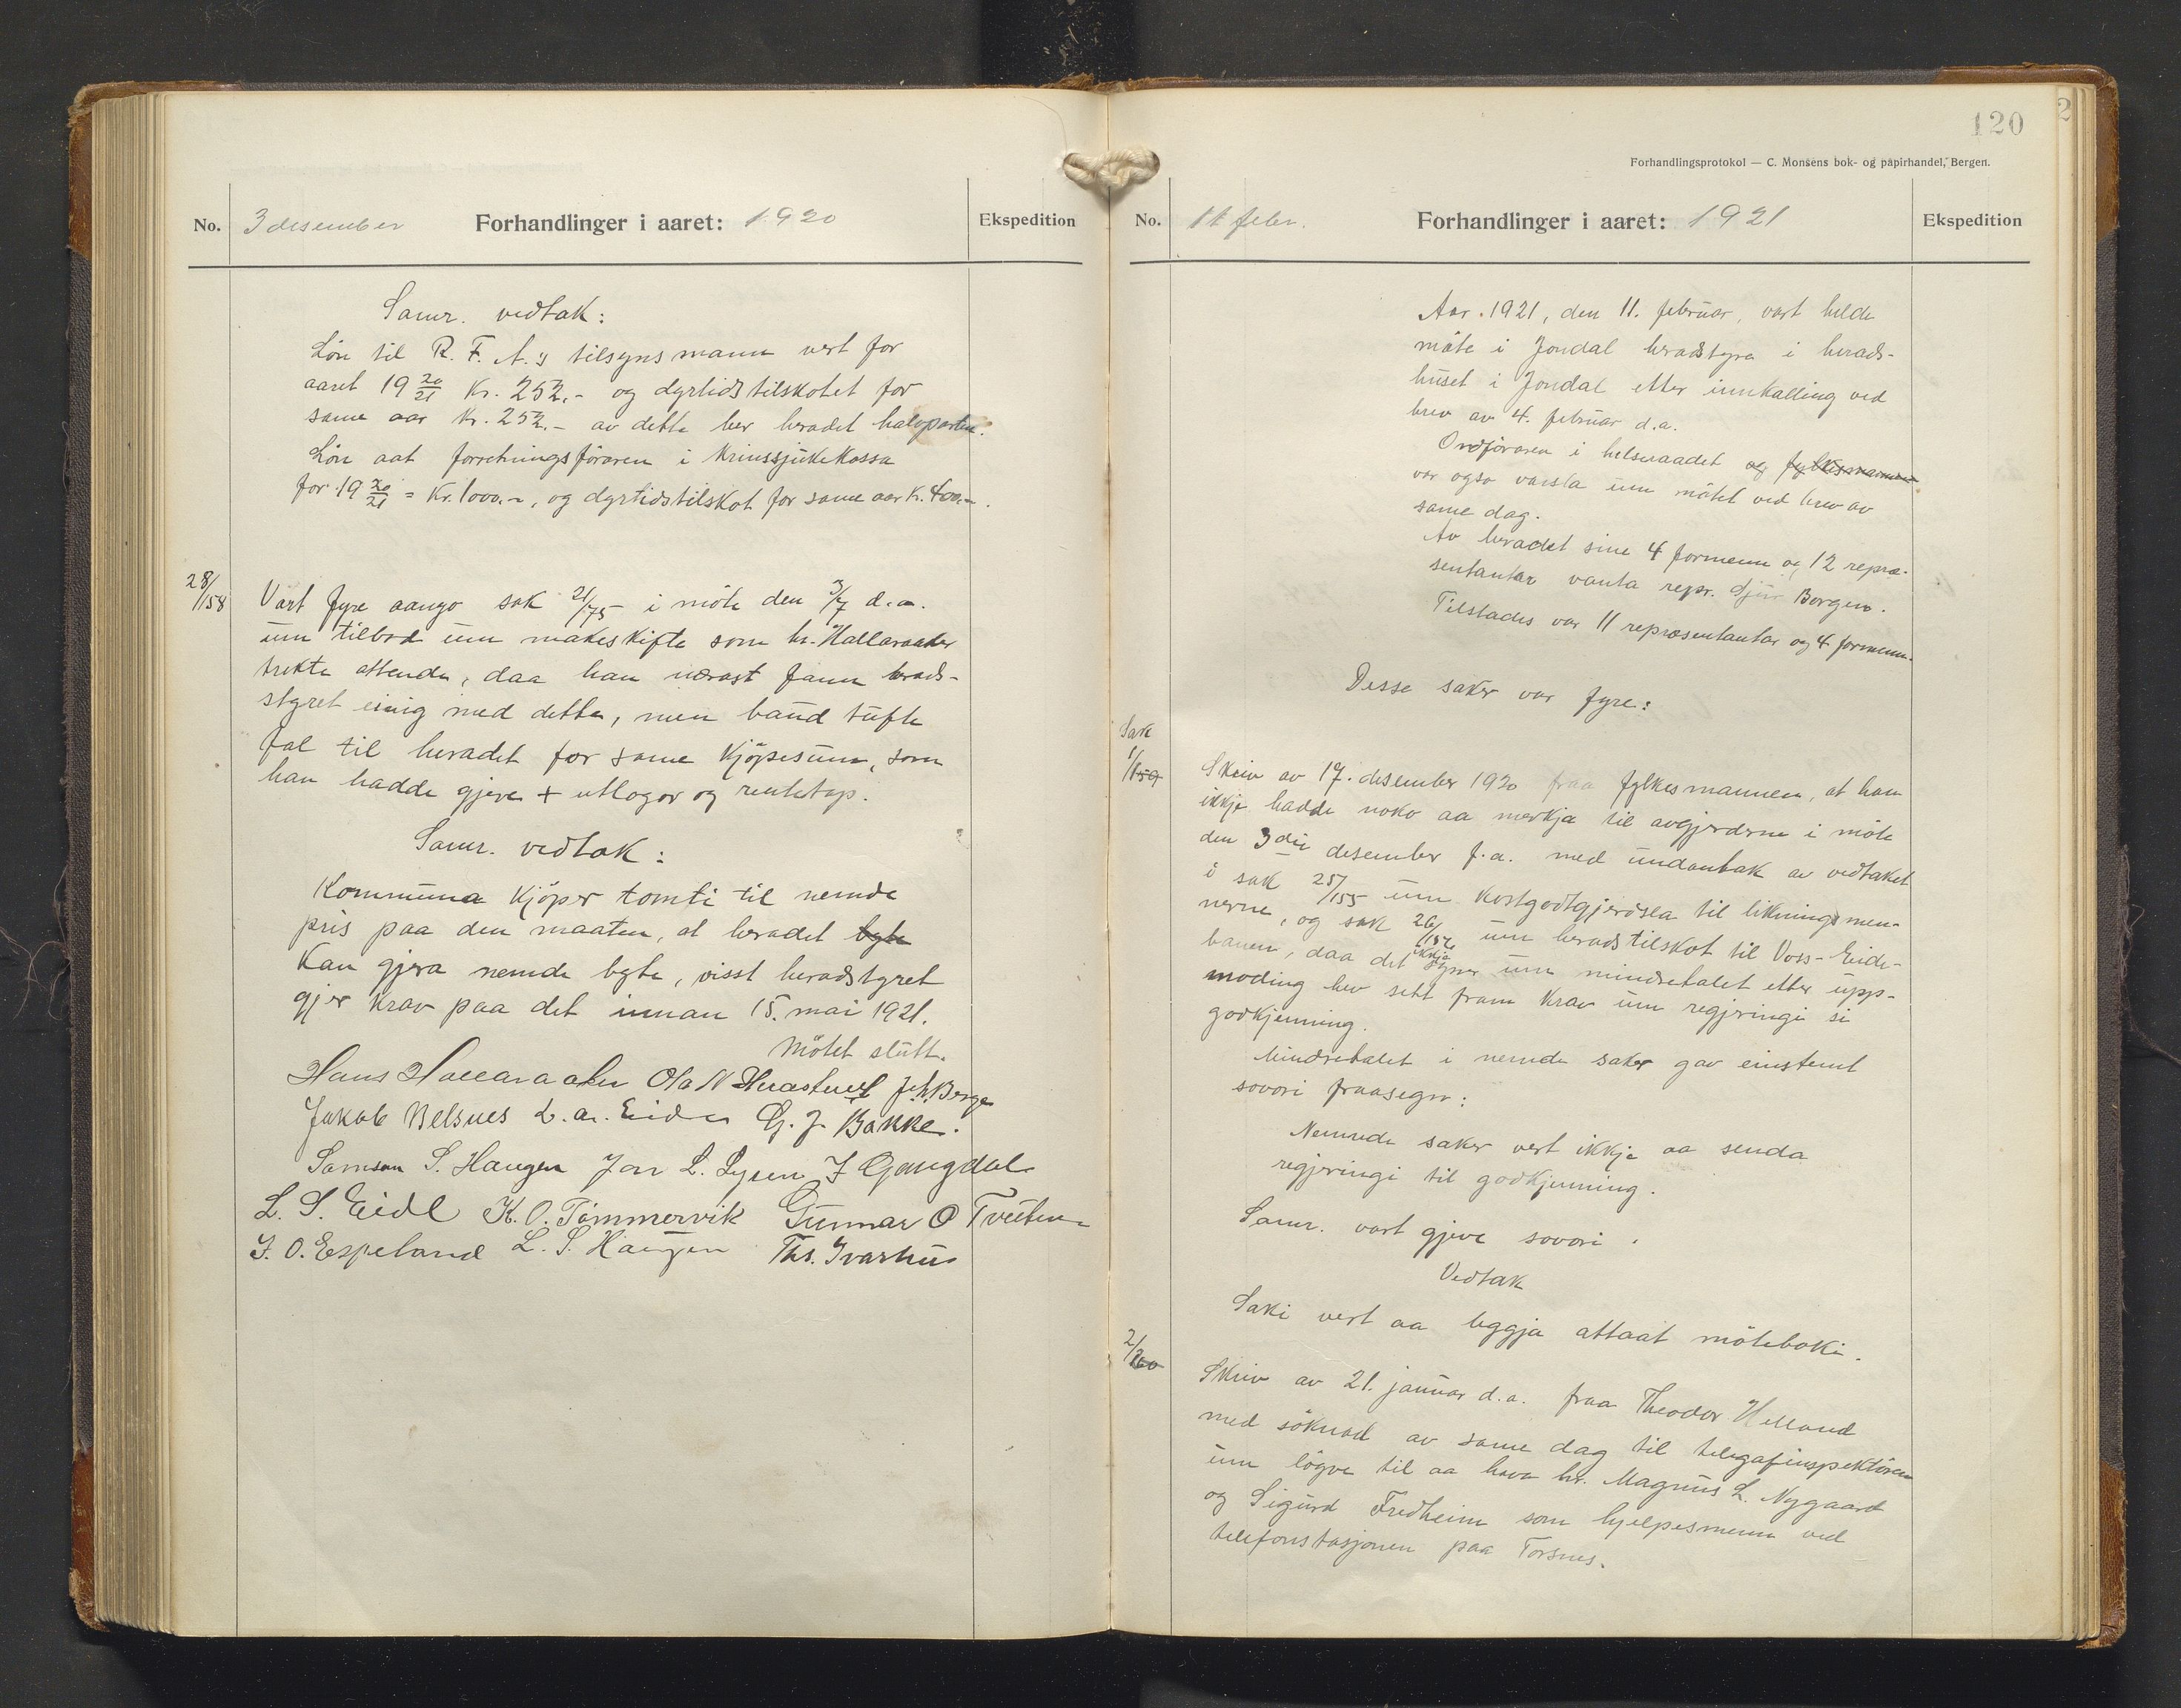 No. 3 desember Forhandlinger i aaret: 1920 Ekspedition
Samr. vedtak:
Løn til R. F. A.s tilsynsmann vert for
aaret 19 20/21 Kr. 252.- og dyrtidstilskotet for
same aar Kr. 252.- av dette ber heradet halvparten.
Løn aat forretningsföraren i Krinssjukekassa
for 19 20/21 = Kr. 1000.-, og dyrtidstilskot for same aar Kr. 400.-.
28/158 Vart fyre aango sak 21/75 i möte den 3/7 d.a.
um tilbod um makeskifte som hr. Hallaraaker
trekte attende, daa han nærast fann herads-
styret einig med dette, men baud tufte
fal til heradet for same kjöpesum, som
han hadde gjeve + utlogor og rentetap.
Samr. vedtak:
Kommuna kjöper tomti til nemde
pris paa den maaten, at heradet byte
kan gjera nemde byte, visst heradstyret
gjer krav paa det innan 15. mai 1921.
Mötet slutt.
Hans Hallaraaker Ola N Herastveit J. H. Berge
Jakob Belsnes L. A. Eide G. J. Bakke.
Samson S. Haugen Jon L. Lysen J Gangdal
L. S. Eide K. O. Tömmervik Gunnar O Tveiten
J. O. Espeland L. S. Haugen Ths. Ivarhus
120
Forhandlingsprotokol — C. Monsens bok- og papirhandel, Bergen.
No. 11 febr. Forhandlinger i aaret: 1921 Ekspedition
Aar 1921, den 11. februar, vart helde
möte i Jondal heradstyre i herads-
huset i Jondal etter innkalling ved
brev av 4. februar d.a.
Ordföraren i helseraadet og fylkesmannen
var ogso varsla um mötet ved brev av
same dag.
Av heradet sine 4 formenn og 12 repræ-
sentantar vanta repr. Sjur Borgen.
Tilstades var 11 repræsentantar og 4 formenn.
Desse saker var fyre:
Sak
1/159 Skriv av 17. desember 1920 fraa fylkesmannen, at han
ikkje hadde noko aa merkja til avgjerderne i möte
den 3die desember f.a. med undantak av vedtaket
i sak 25/155 um kostgodtgjerdsla til likningsmen-
nerne, og sak 26/156 um heradstilskot til Voss-Eide-
banen, daa det ikkje syner um mindretalet etter upp-
moding hev sett fram krav um regjeringi si
godkjenning.
Mindretalet i nemde saker gav einstemt
sovori fraasegn:
Nemnde saker vert ikkje aa senda
regjeringi til godkjenning.
Samr. vart gjeve sovori.
Vedtak
Saki vert aa leggja attaat möteboki.
2/160 Skriv av 21. januar d.a. fraa Theodor Helland
med söknad av same dag til telegrafinspektören
um lögve til aa hava hr. Magnus L. Nygaard
og Sigurd Fredheim som hjelpesmenn ved
telefonstasjonen paa Torsnes.